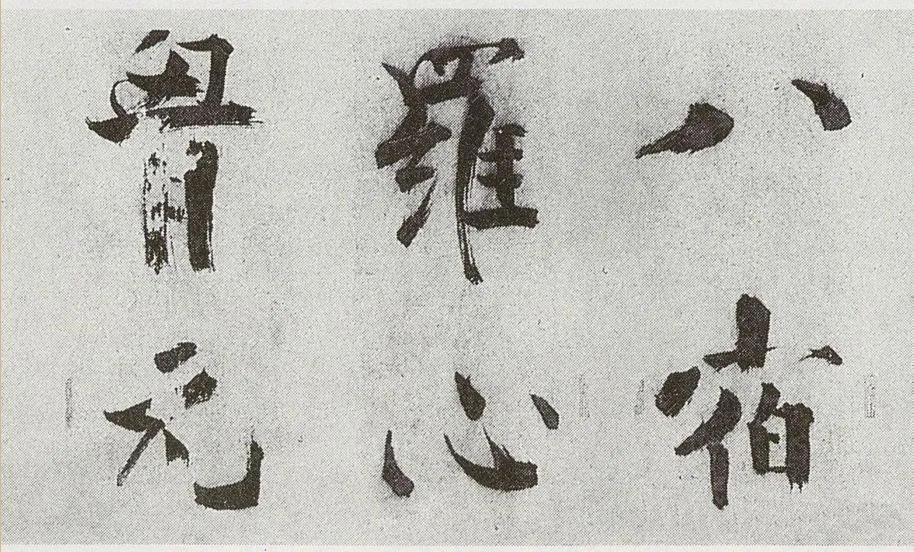 八宿
羅心
胷元